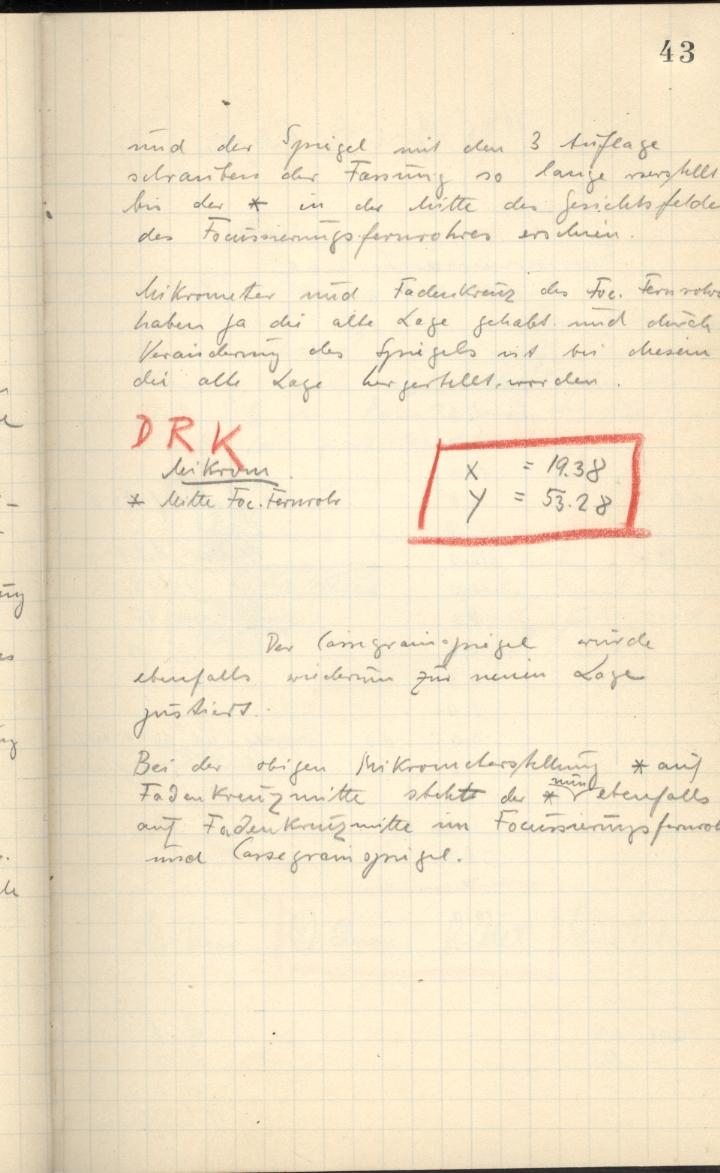 43
und der Spiegel mit den 3 Auflage
schrauben der Fassung so lange verstellt
bis der * in der Mitte des Gesichtsfelde
des Focussierungsfernrohres erschien.
Mikrometer und Fadenkreuz des Foc. Fernrohrs
haben ja die alte Lage gehabt und durch
Veränderung des Spiegels ist bei diesem
die alte Lage hergestellt worden.
DRK
Mikrom.
* Mitte Foc. Fernrohr
X = 19.38
Y = 53.28
Der Cassegrainspiegel wurde
ebenfalls wiederum zur neuen Lage
justiert.
Bei der obigen Mikrometerstellung * auf
Fadenkreuzmitte steht der * nun ebenfalls
auf Fadenkreuzmitte im Focussierungsfernroh
und Cassegrainspiegel.